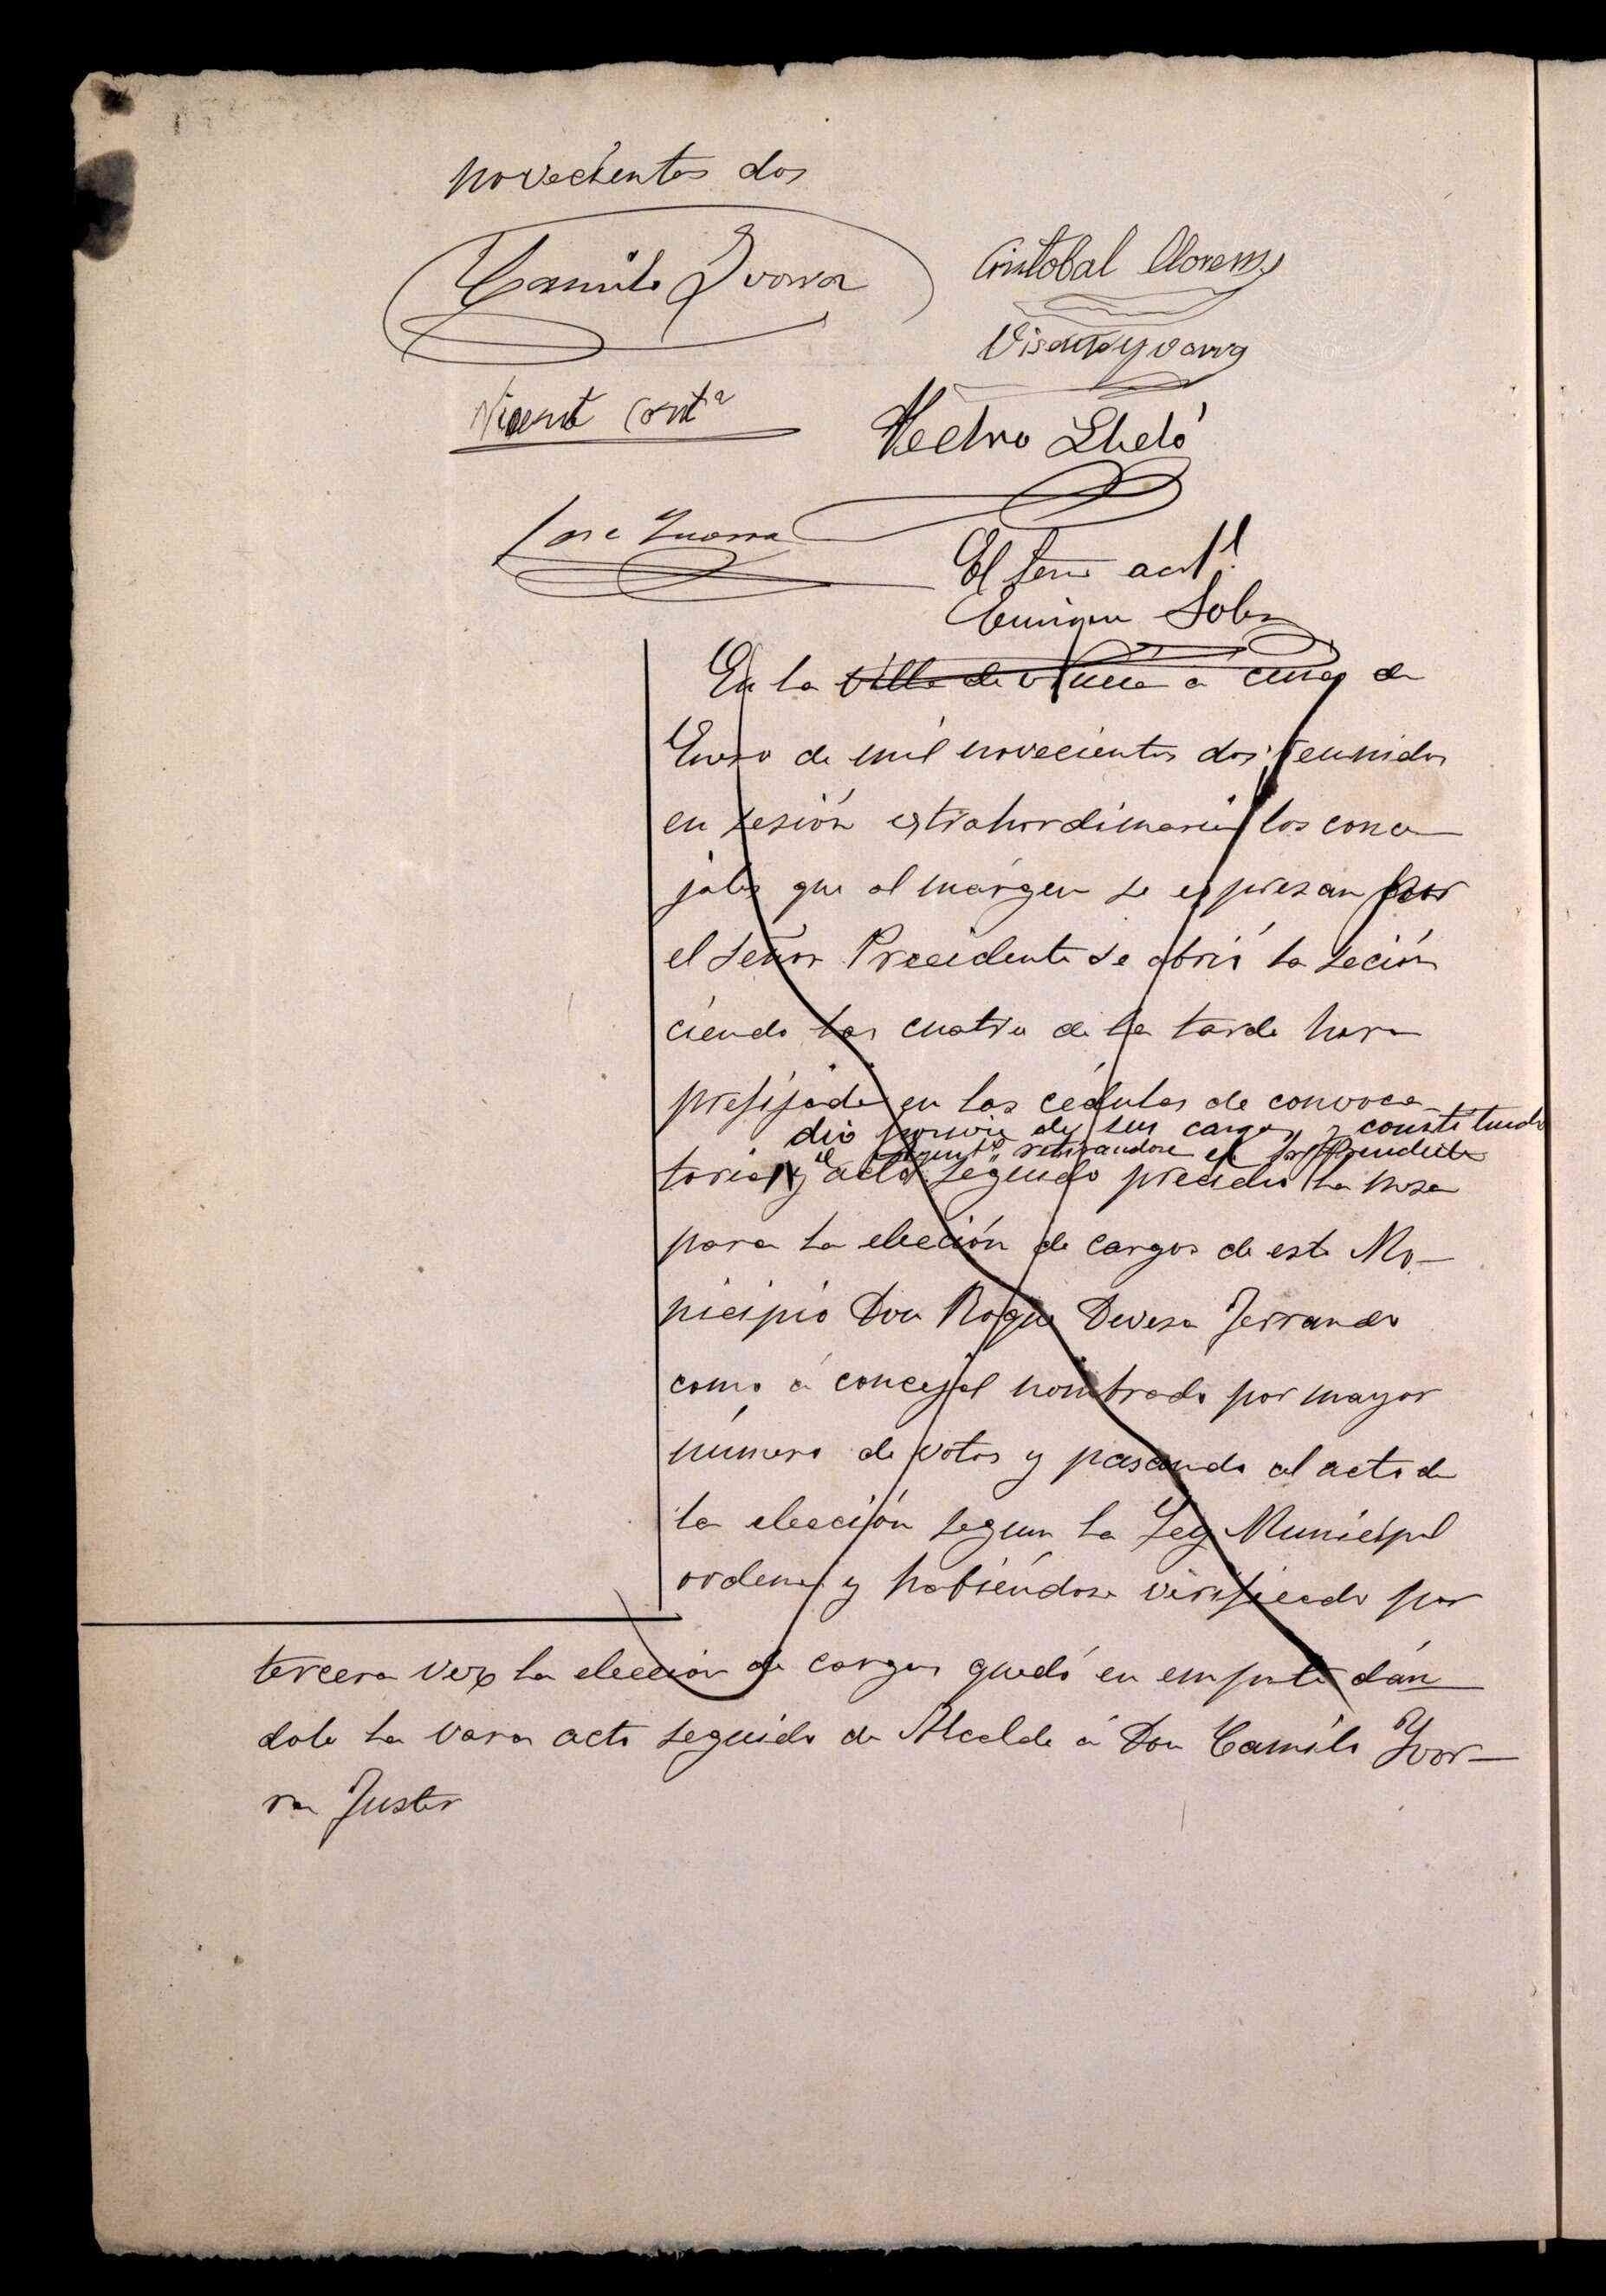 novecientos dos
Camilo Yvorra
Cristobal Llorens
Visente Yvorra
Vicente
Pedro Lledó
Jose Yvorra
El Srio actl
Enrique
En la Villa de a cinco de
Enero de mil novecientos dos; reunidos
en sesión extrahordinaria los conce
jales que al márgen se espresan por
el Señor Precidente se abrió la seción
ciendo las cuatro de la tarde hora
prefijada en las cédulas de convoca
dio de sus cargos y constituido
el retirandose el Sor Precidente
toria y acto seguido precidio la mesa
para la eleción de cargos de este Mo-
nicipio Don Roque Devesa Ferrando
como á concejal nombrado por mayor
número de votos y pasando al acto de
la elección segun la Ley Municipal
ordena y habiéndose verificado por
tercera vez la elección de cargos quedó en empate dán
dole la vara acto seguido de Alcalde á Don Camilo Yvor-
ra Fuster